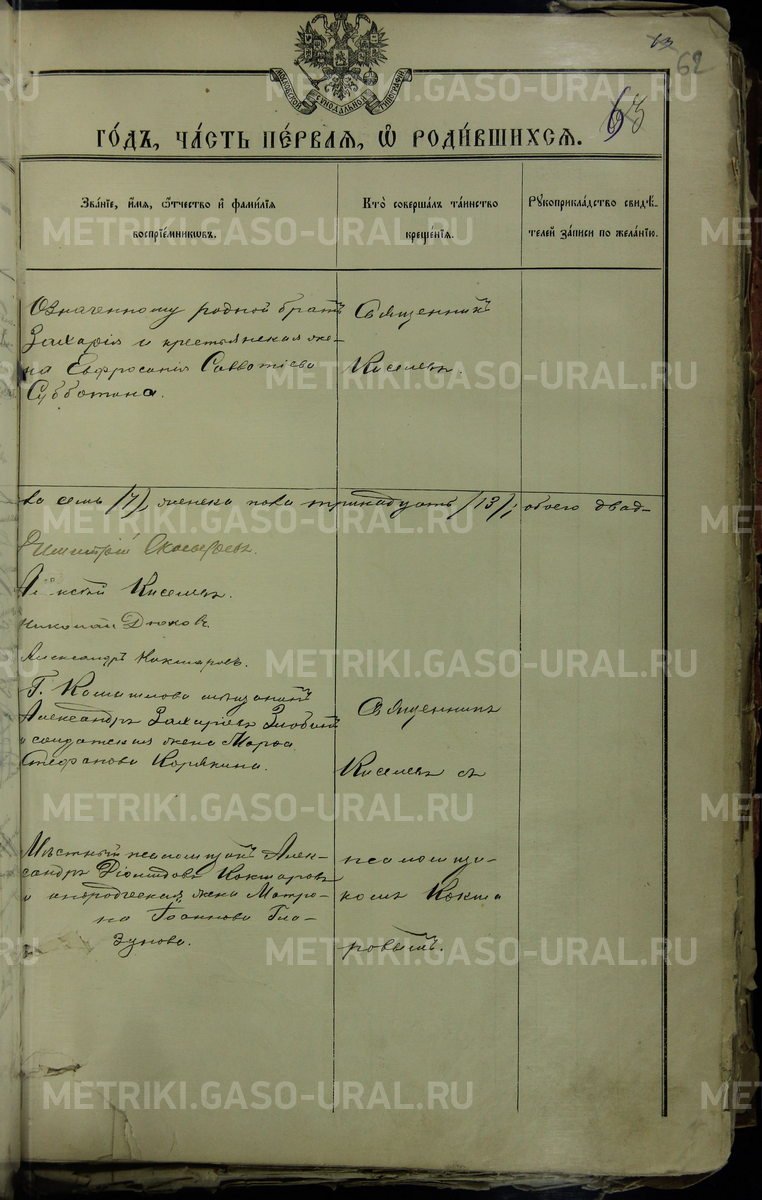 62
63
МОСКОВСКОЙ СѴНОДАЛЬНОЙ ТИПОГРАФІИ
ГО́ДЪ, ЧА́СТЬ ПЕ́РВАЯ, Ѡ РОДИ́ВШИХСЯ.
Зва́ніе, и́мя, ѻ҆́тчество и҆ фами́лія
воспріе́мникѡвъ.
Кто̀ соверша́лъ та́инство
креще́нія.
Рꙋкоприкла́дство свидѣ́-
телей за́писи по жела́нію.
Означенному родной братъ
Захарія и крестьянская же-
на Евфросинія Савватіева
Субботина.
Священникъ
Киселевъ.
ка семь /7/, женска пола тринадцать /13/; обоего двад-
Димитрій
Алексій Киселевъ.
Николай Дюковъ.
Александръ Кокшаровъ.
Г. Камышлова мѣщанинъ
Александръ Захаріевъ Злобинъ
и солдатская жена Марѳа
Стефанова Корякина.
Священникъ
Киселевъ съ
Мѣстный псаломщикъ Алек-
сандръ Діомидовъ Кокшаровъ
и жена Матро-
на Іоаннова Гла-
зунова.
псаломщи-
комъ Кокша
ровымъ.
METRIKI.GASO-URAL.RU